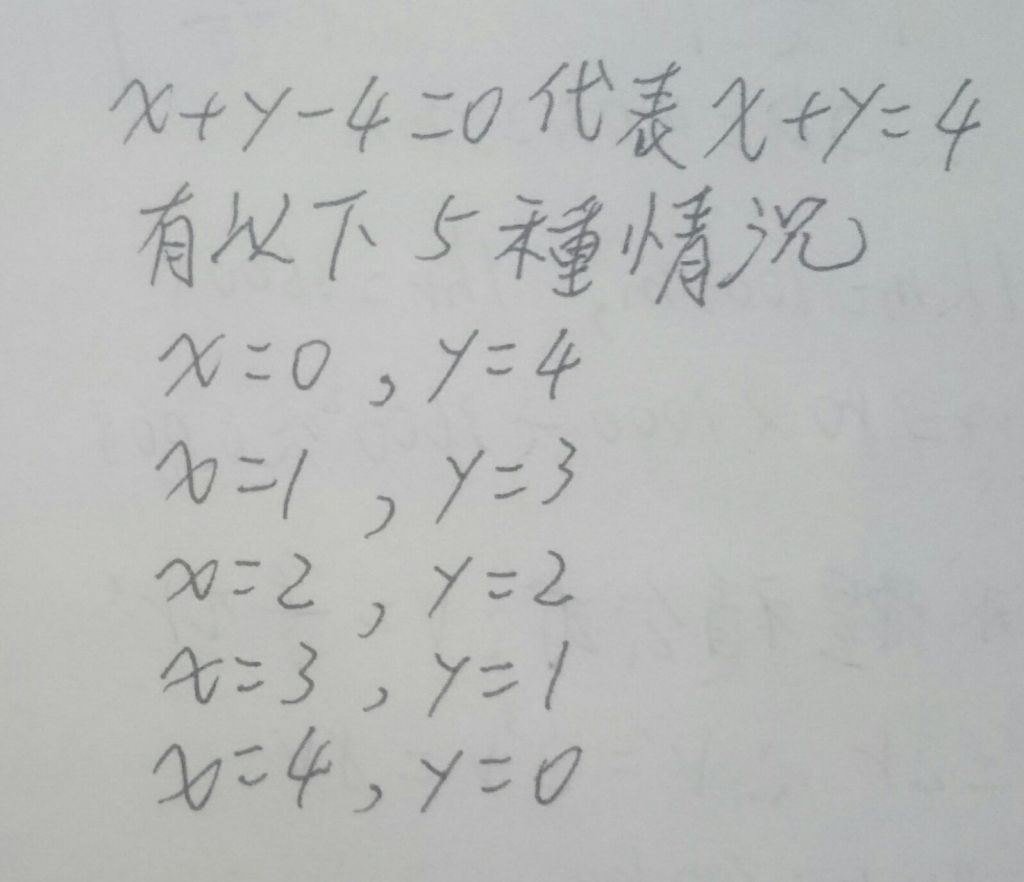 x+y-4=0代表x+y=4
有以下5種情況
x=0,y=4
x=1,y=3
x=2,y=2
x=3,y=1
x=4,y=0